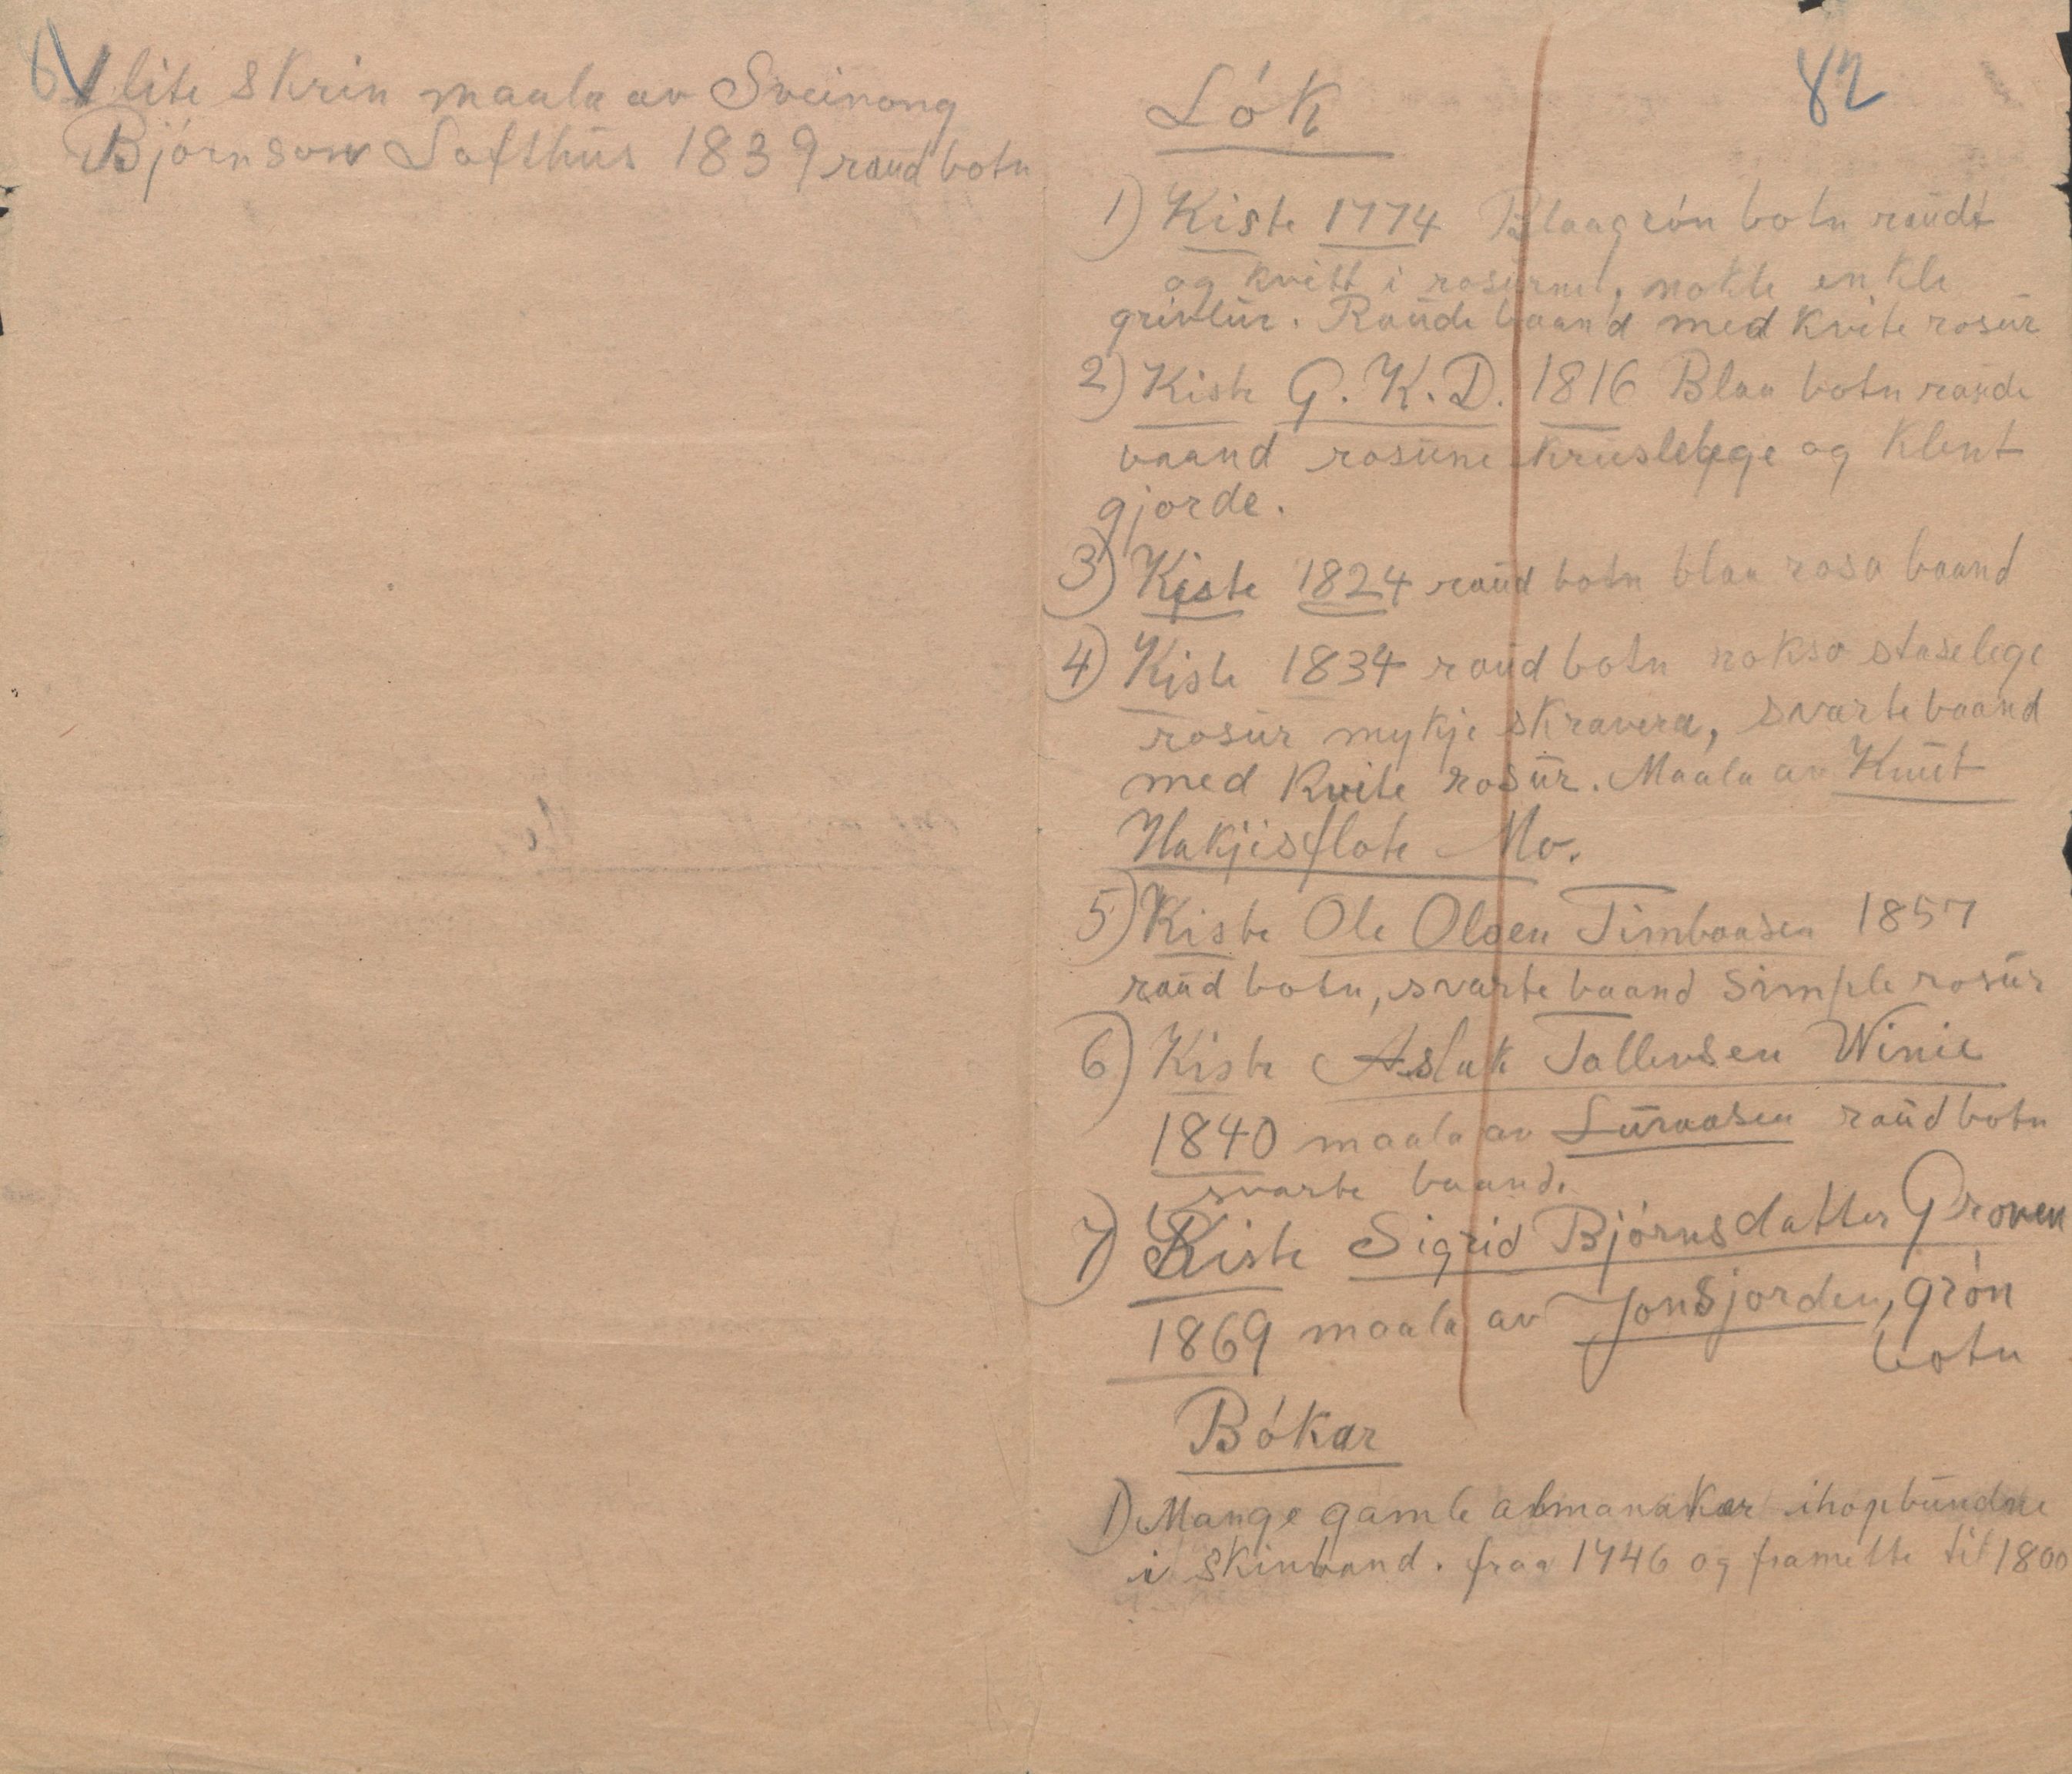 lite skrin maala av Sveinong
Bjórnson Lofthus 1839 raud botn
82
Lók
1) Kiste 1774 Blaagrón botn raudt
og kvitt i rosurne, nokle enkle
greinur. Raude baand med kvite rosur
2) Kiste G. K. D. 1816 Blaa botn raude
baand rosune kruslelege og klent
gjorde.
3) Kiste 1824 raud botn blaa rosa baand
4) Kiste 1834 raud botn nokso staselege
rosur mykje skravera, svarte baand
med kvite rosur. Maala av Knut
Hakjisflote Mo.
5) Kiste Ole Olsen Timbaasen 1857
raud botn, svarte baand simple rosur
6) Kiste Aslak Tallevsen Winie
1840 maala av Luraasen raud botn
svarte baand.
7) Kiste Sigrid Bjórnsdatter Groven
1869 maala av Jonsjorden, grón
botn
Bókar
1) Mange gamle almanakar ihopbundne
i skinband. fraa 1746 og frametter til 1800